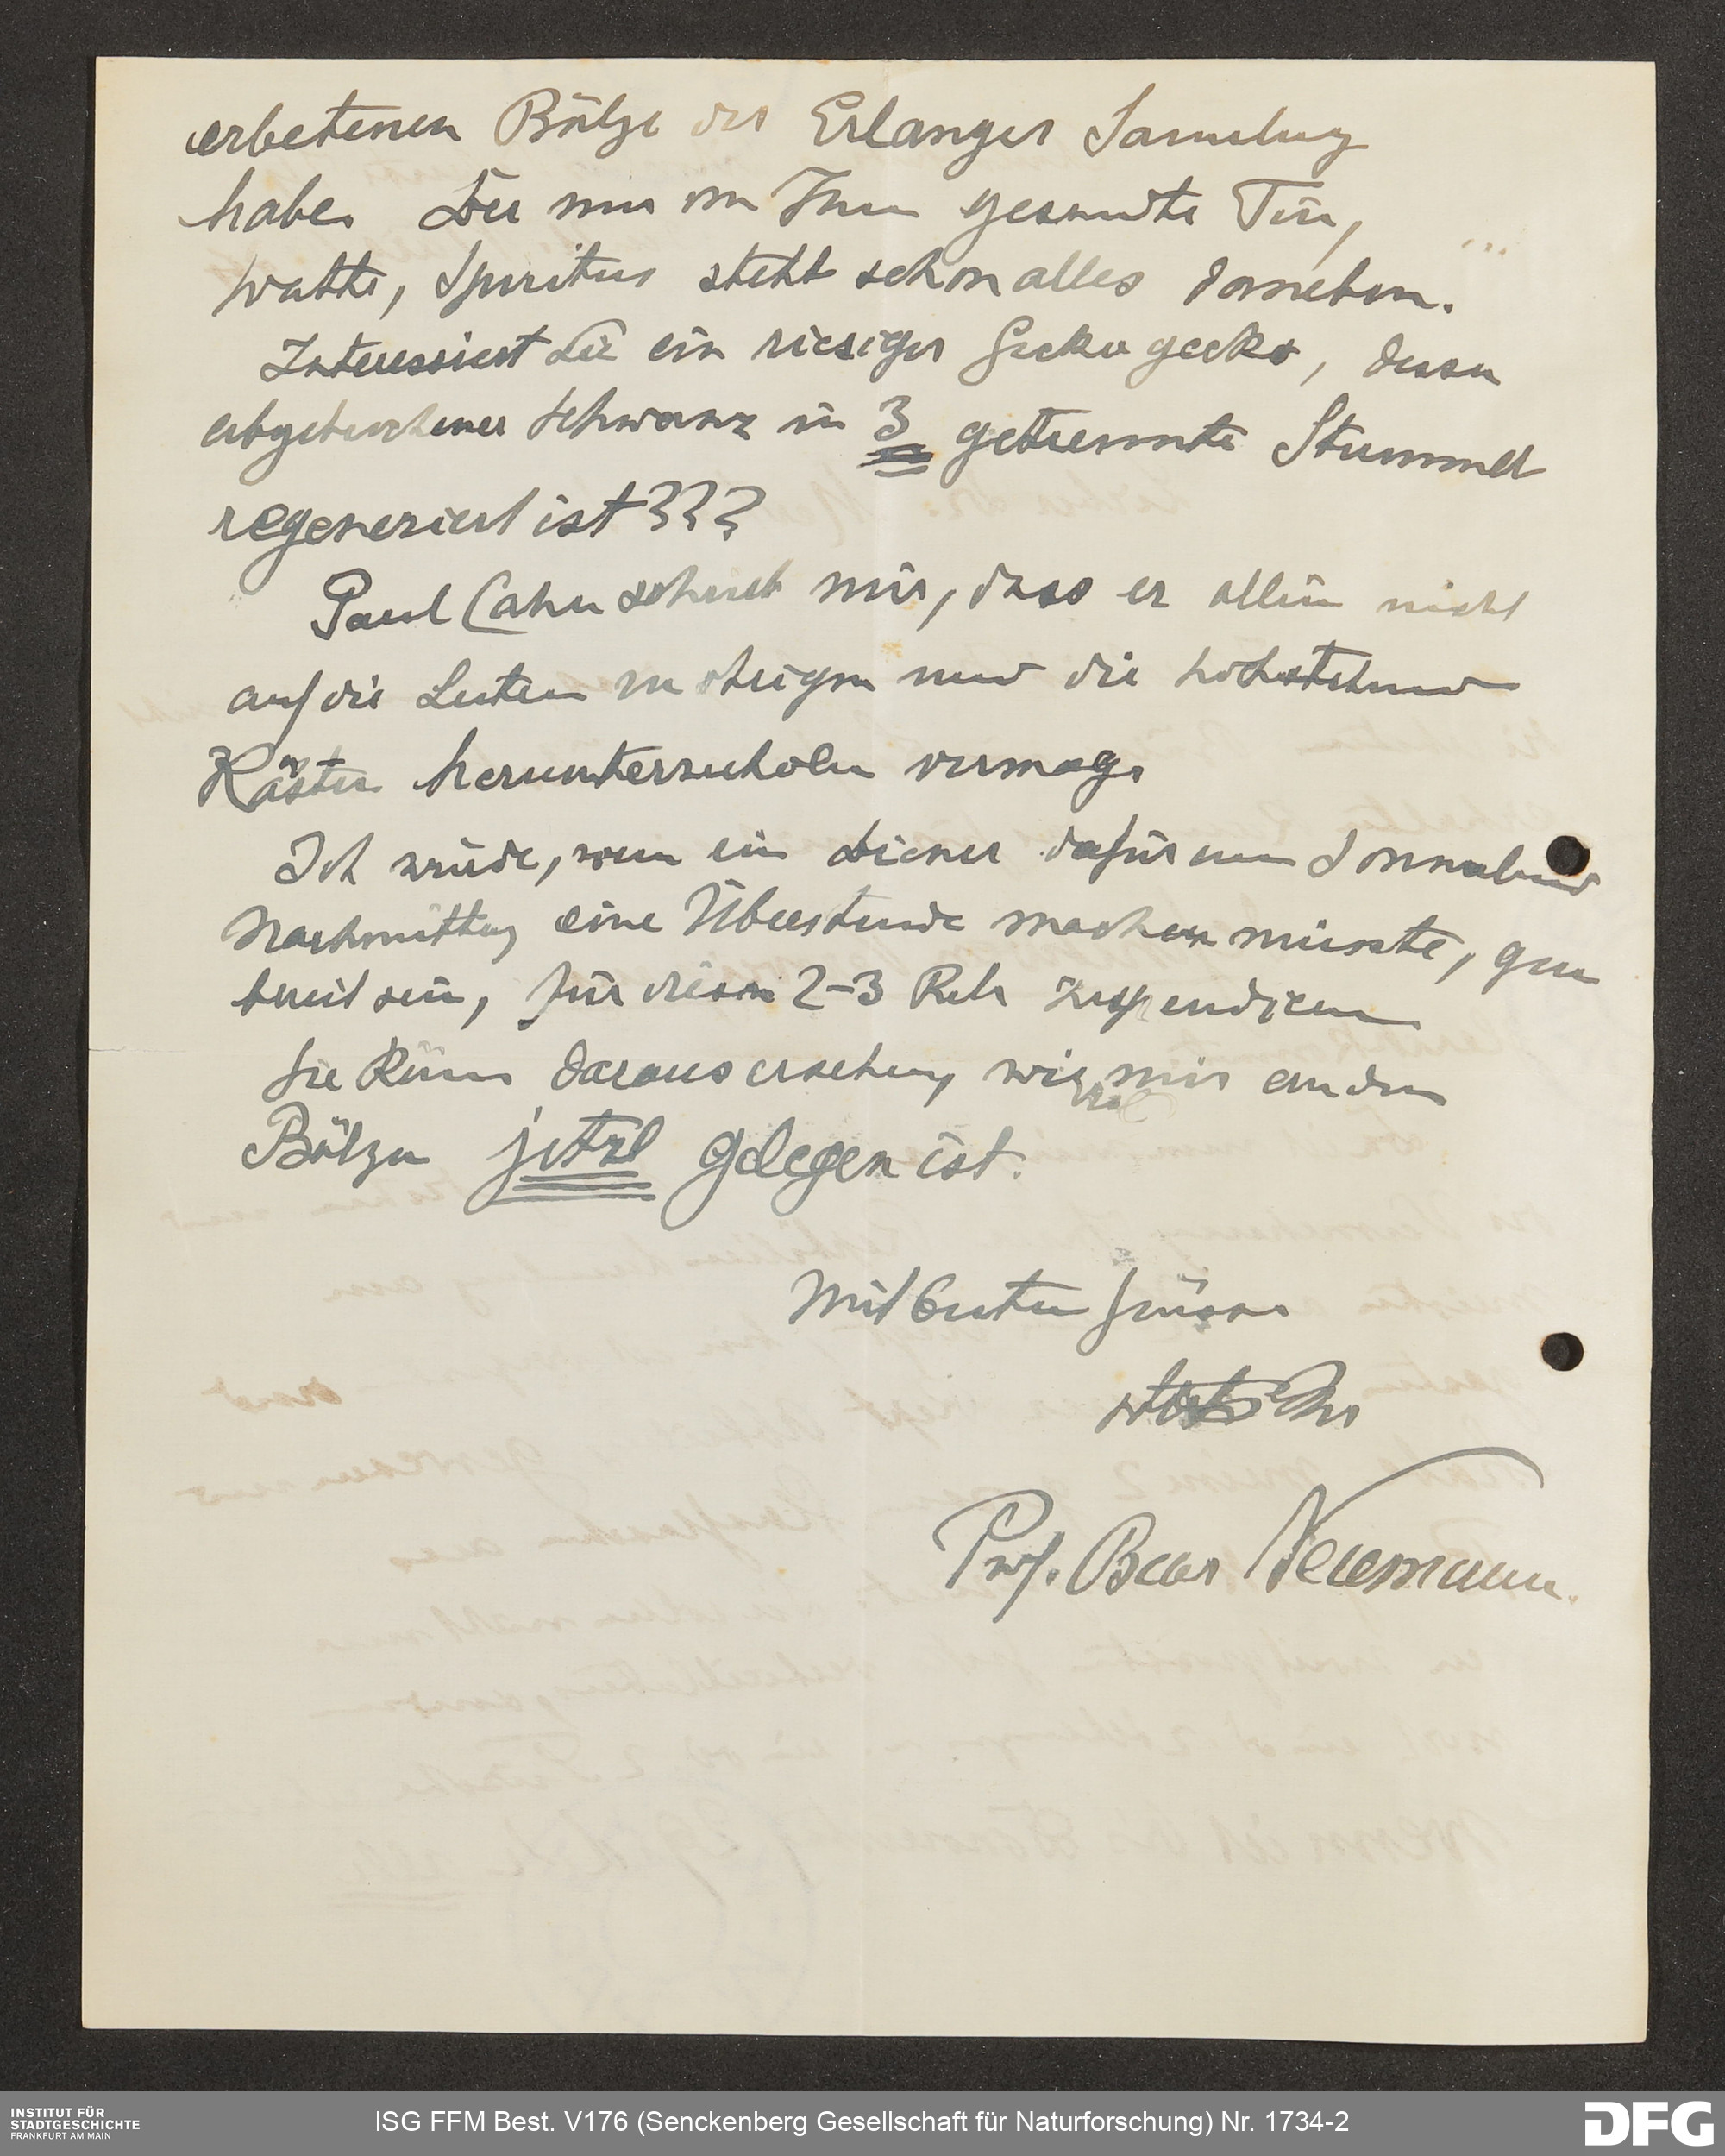 erbetenen Bälge der Erlanger Samlung
habe. Der mir von Ihnen gesandte Tin,
Watte, Spiritus steht schon alles daneben.
Interessiert Sie ein riesiger Gecko gecko, dessen
abgebrochener Schwanz in 3 getrennte Stummel
regeneriert ist???
Paul Cahn schrieb mir, dass er allein nicht
auf die Leitern zu steigen und die hochstehend
Kästen herunterzuholen vermag.
Ich würde, wenn ein Diener dafür am Sonnabend
Nachmittag eine Überstunde machen müsste, gern
bereit sein, für diesen 2-3 Rm zu spendieren
Sie können daraus ersehen, wie viel mir an den
Bälgen jetzt gelegen ist.
Mit besten Grüssen
stets Ihr
Prof. Oscar Neumann.
INSTITUT FÜR
STADTGESCHICHTE
FRANKFURT AM MAIN
ISG FFM Best. V176 (Senckenberg Gesellschaft für Naturforschung) Nr. 1734-2
DFG